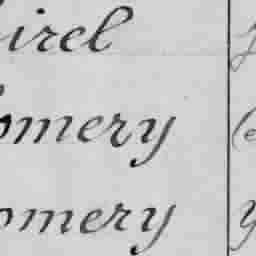 irel
omery
omery